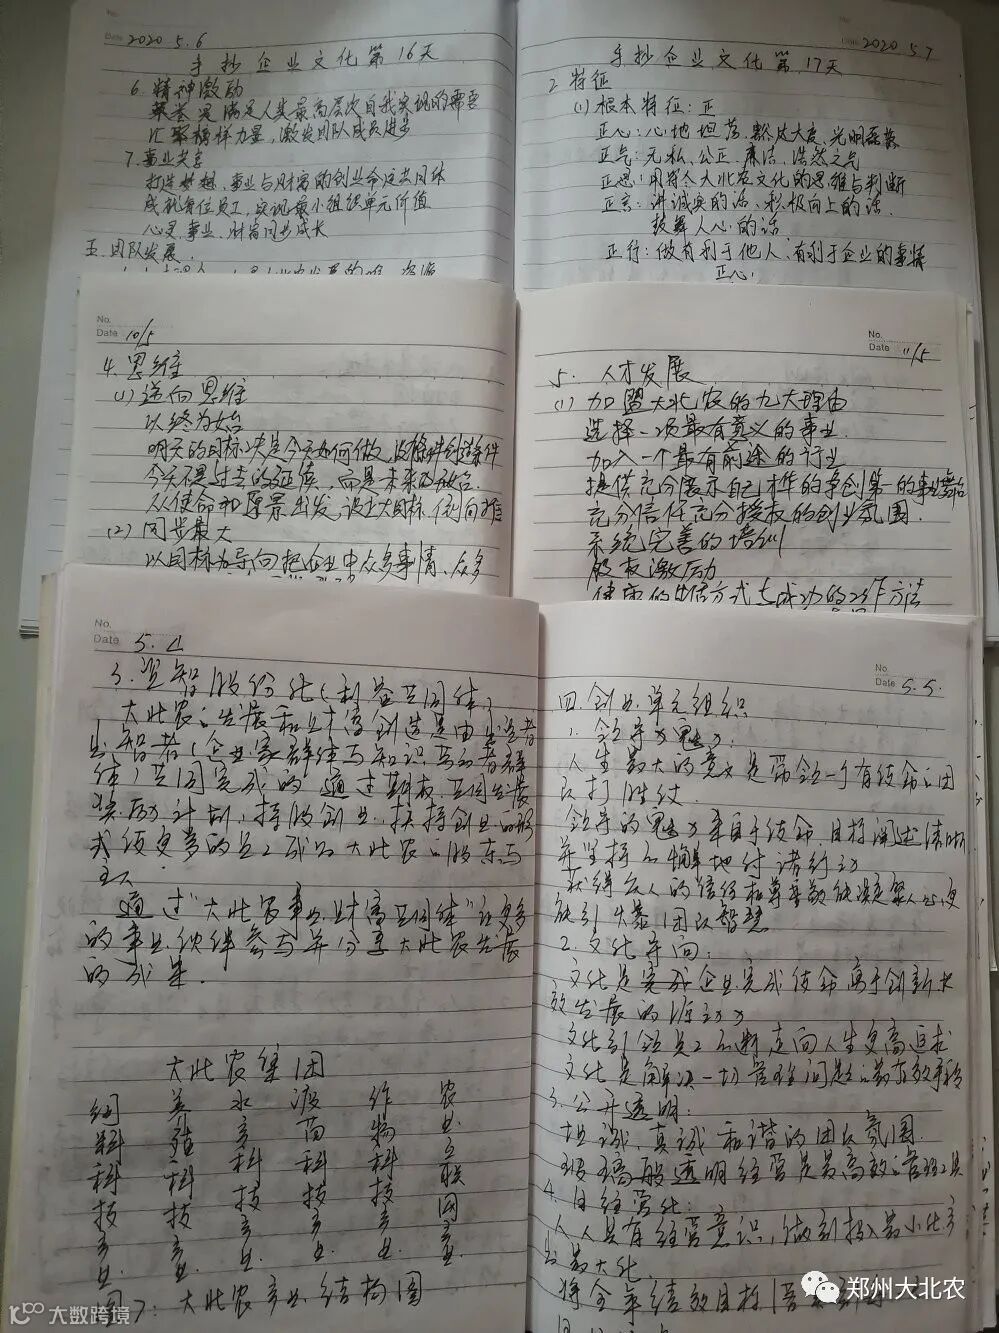 Date 2020 5.6
手抄企业文化第16天
6.精神激励
荣誉是满足人类最高层次自我实现的需要
汇聚榜样力量,激发团队成员进步
7.事业共享
打造梦想、事业与财富的创业命运共同体
成就每位员工,实现最小组织单元价值
心灵、事业、财富同步成长
五.团队发展.
No.
Date 2020 5.7
手抄企业文化第17天
2 特征
(1)根本特征:正
正心:心地坦荡、豁达大度、光明磊落
正气:无私、公正、廉洁、浩然之气
正思:用符合大北农文化的思维与判断
正言:讲诚实的话、积极向上的话.
鼓舞人心的话
正行:做有利于他人、有利于企业的事情
正心:
No.
Date 10/5
4.思维
(1)逆向思维
以终为始
明天的目标决定今天如何做,没条件创造条件
今天不是过去的延续,而是未来的开始.
从使命和愿景出发,设立大目标,倒向推
(2)同步最大
以目标为导向把企业中众多事情、众多
No.
Date 11/5
5.人才发展
(1)加盟大北农的九大理由
选择一项最有意义的事业
加入一个最有前途的行业
提供充分展示自己才华的争创第一的事业舞台
充分信任充分授权的创业氛围
系统完善的培训
股权激励
健康的生活方式与成功的工作方法
No.
Date 5.4
3.资智股份化(利益共同体)
大北农的发展和财富创造是由出资者
出智者(企业家群体与知识劳动者群
体)共同完成的 通过期权、共同发展
奖励计划,持股创业、扶持创业的形
式使更多的员工成为大北农的股东与
主人
通过“大北农事业财富共同体”让更多
的事业伙伴参与并分享大北农发展
的成果.
大北农集团
饲 养 水 疫 作 农
料 殖 产 苗 物 业
科 科 科 科 科 互
技 技 技 技 技 联
产 产 产 产 产 网
业 业 业 业 业 产
图7:大北农产业结构图
No.
Date 5.5.
四.创业单元组织
1.领导力(魅力):
人生最大的意义是带领一个有使命的团
队打胜仗.
领导的魅力来自于使命、目标阐述清晰
并坚持不懈地付诸行动
获得众人的信任和尊尊敬能凝聚人心,更
能引爆团队智慧
2.文化导向:
文化是完成企业完成使命高于创新长
效发展的源动力
文化引领员工不断走向人生更高追求
文化是解决一切管理问题的最有效手段
3.公开透明:
坦诚、真诚和谐的团队氛围
玻璃般透明经营是最高效的管理工具
4.自经营化:
人人具有经营意识,做到投入最小化产
出最大化
将全年绩效目标
郑州大北农
大数跨境